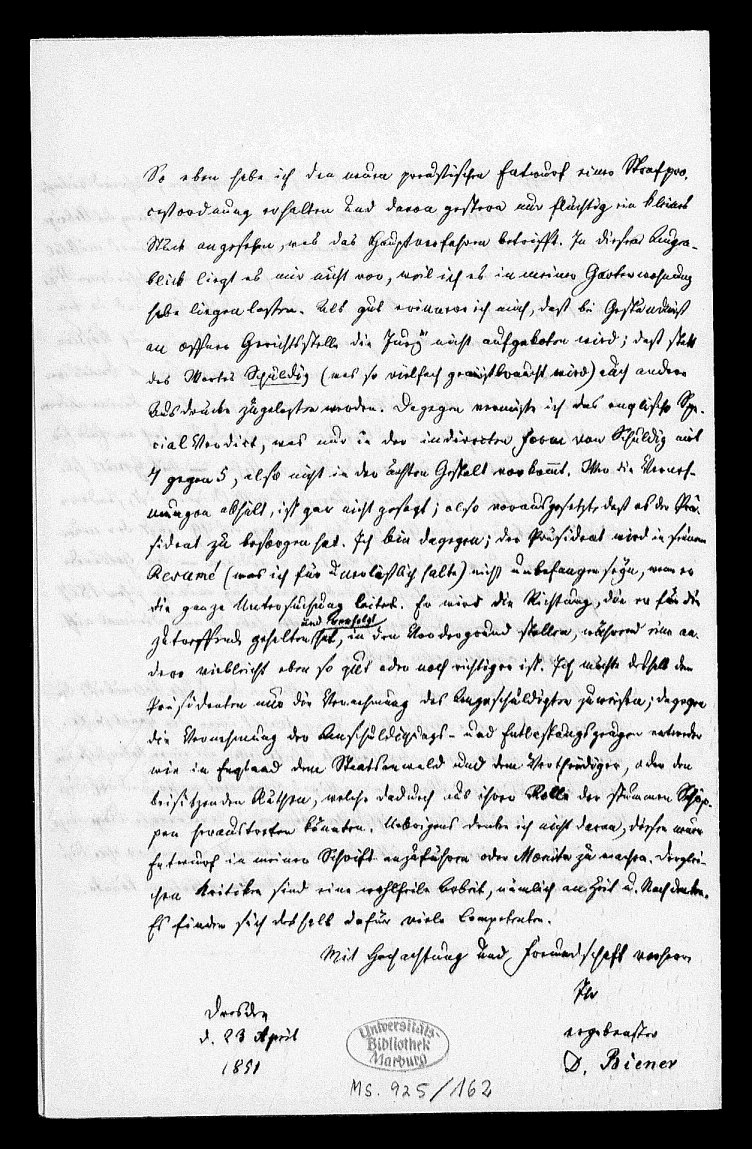 So eben habe ich den neuen preußischen Entwurf einer Strafpro-
cessordnung erhalten und davon gestern nur flüchtig ein kleines
Stück angesehen, was das Hauptverfahren betrifft. In diesem Augen-
blick liegt es mir nicht vor, weil ich es in meiner Gartenwohnung
habe liegen lassen. Als gut erinnere ich mich, daß bei Geständniß
an offner Gerichtsstelle die Jury nicht aufgeboten wird; daß statt
des Wortes Schuldig (was so vielfach gemißbraucht wird) auch andere
Ausdrücke zugelassen werden. Dagegen vermisse ich das englische Spe-
cial Verdict, was nur in der indirecten Form von Schuldig mit
7 gegen 5, also nicht in der ächten Gestalt vorkommt. Wer die Verneh-
mungen abhält, ist gar nicht gesagt; also vorausgesetzt, daß es der Prä-
sident zu besorgen hat. Ich bin dagegen; der Präsident wird in seinem
Resumé (was ich für unerläßlich halte) nicht unbefangen seyn, wenn er
die ganze Untersuchung leitet. Er wird die Richtung, die er für die
zutreffende gehalten und verfolgt hat, in den Vordergrund stellen, während eine an-
dere vielleicht eben so gut oder noch richtiger ist. Ich möchte deshalb dem
Präsidenten nur die Vernehmung des Angeschuldigten zuweisen; dagegen
die Vernehmung der Anschuldigungs- und Entlastungszeugen entweder
wie in England dem Staatsanwald und dem Vertheidiger, oder den
beisitzenden Räthen, welche dadurch aus ihrer Rolle der stummen Schöp-
pen heraustreten könnten. Uebrigens denke ich nicht daran, diesen neuen
Entwurf in meiner Schrift anzuführen oder Monita zu machen. Derglei-
chen Kritiken sind eine wohlfeile Arbeit, nämlich an Zeit u. Nachdenken.
Es finden sich deshalb dafür viele Competenten.
Mit Hochachtung und Freundschaft verharre
Ihr
Dresden
d. 23 April
1851
ergebenster
D. Biener
Universitäts-
Bibliothek
Marburg
MS. 925/162